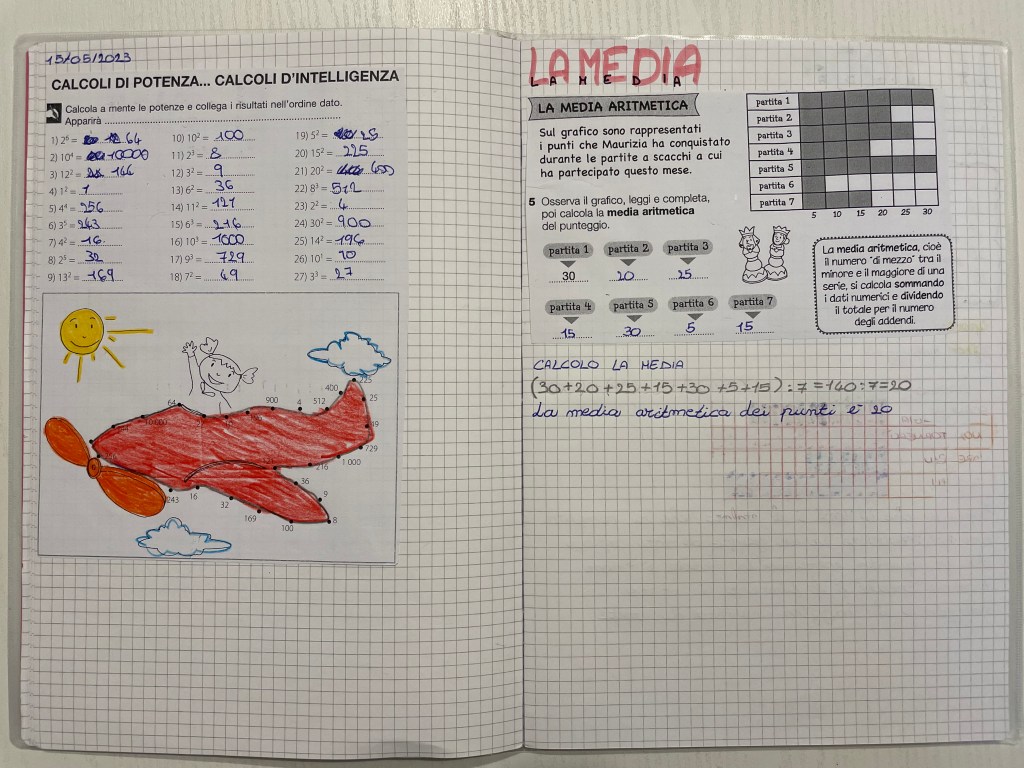 15/05/2023
CALCOLI DI POTENZA... CALCOLI D'INTELLIGENZA
Calcola a mente le potenze e collega i risultati nell'ordine dato.
Apparirà
1) 2⁶ = 64
2) 10⁴ = 10000
3) 12² = 144
4) 1² = 1
5) 4⁴ = 256
6) 3⁵ = 243
7) 4² = 16
8) 2⁵ = 32
9) 13² = 169
10) 10² = 100
11) 2³ = 8
12) 3² = 9
13) 6² = 36
14) 11² = 121
15) 6³ = 216
16) 10³ = 1000
17) 9³ = 729
18) 7² = 49
19) 5² = 25
20) 15² = 225
21) 20² = 400
22) 8³ = 512
23) 2² = 4
24) 30² = 900
25) 14² = 196
26) 10¹ = 10
27) 3³ = 27
225
400
25
512
4
900
64
10 000
49
729
1 000
216
36
9
8
100
169
32
16
243
LA MEDIA
LA MEDIA
LA MEDIA ARITMETICA
Sul grafico sono rappresentati
i punti che Maurizia ha conquistato
durante le partite a scacchi a cui
ha partecipato questo mese.
partita 1
partita 2
partita 3
partita 4
partita 5
partita 6
partita 7
5 10 15 20 25 30
5 Osserva il grafico, leggi e completa,
poi calcola la media aritmetica
del punteggio.
partita 1 partita 2 partita 3
30 20 25
partita 4 partita 5 partita 6 partita 7
15 30 5 15
La media aritmetica, cioè
il numero "di mezzo" tra il
minore e il maggiore di una
serie, si calcola sommando
i dati numerici e dividendo
il totale per il numero
degli addendi.
CALCOLO LA MEDIA
(30+20+25+15+30+5+15):7=140:7=20
La media aritmetica dei punti è 20